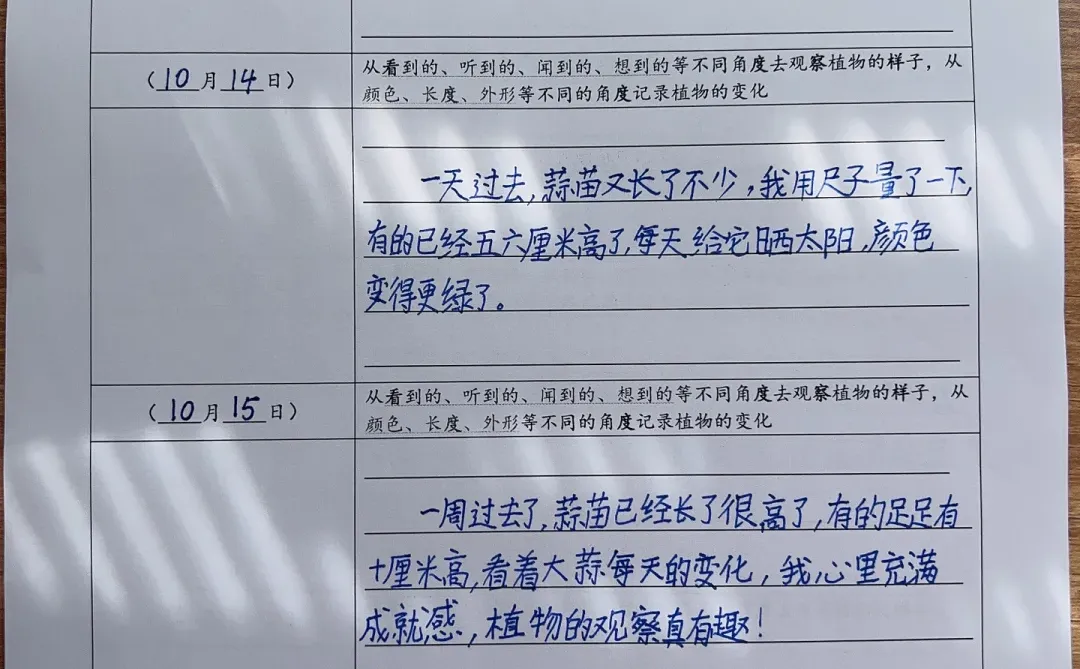 （10月14日）
从看到的、听到的、闻到的、想到的等不同角度去观察植物的样子，从
颜色、长度、外形等不同的角度记录植物的变化
一天过去，蒜苗又长了不少，我用尺子量了一下，
有的已经五六厘米高了，每天给它晒太阳，颜色
变得更绿了。
（10月15日）
从看到的、听到的、闻到的、想到的等不同角度去观察植物的样子，从
颜色、长度、外形等不同的角度记录植物的变化
一周过去了，蒜苗已经长了很高了，有的足足有
十厘米高，看着大蒜每天的变化，我心里充满
成就感，植物的观察真有趣！